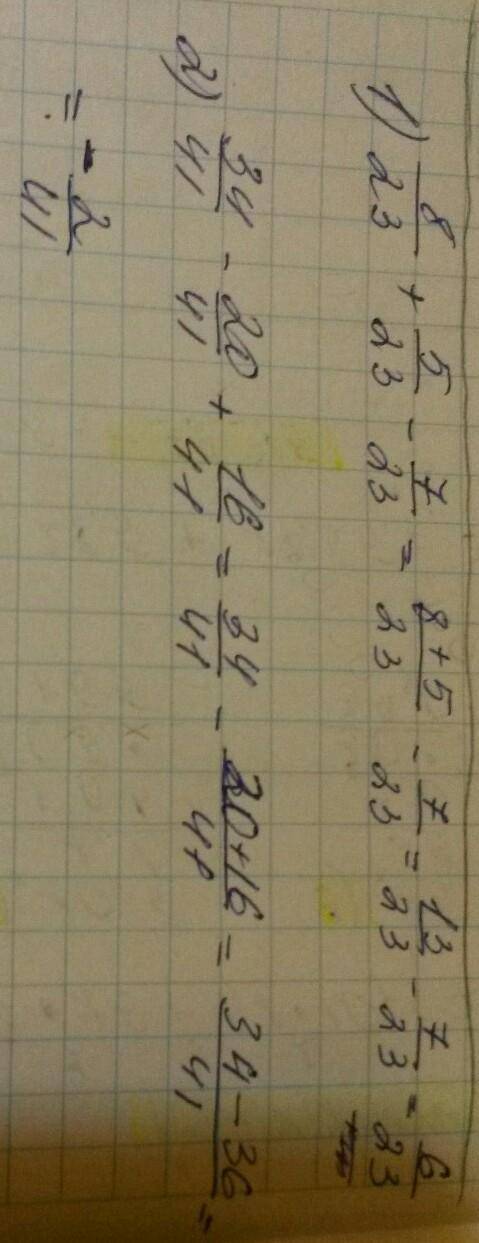 1) 8/23 + 5/23 - 7/23 = 8+5/23 - 7/23 = 13/23 - 7/23 = 6/23
2) 34/41 - 20/41 + 16/41 = 34/41 - 20+16/41 = 34-36/41 =
= - 2/41